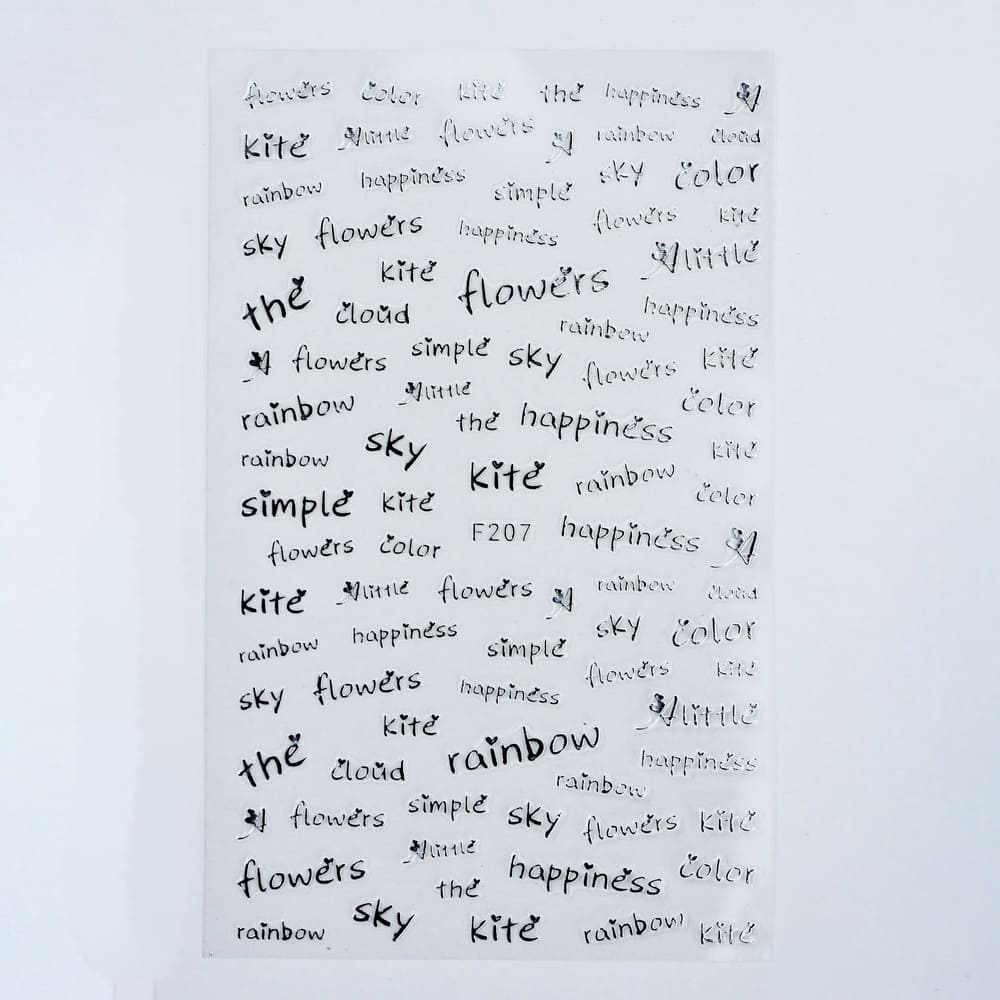 flowers color kite the happiness
kite little flowers rainbow cloud
rainbow happiness simple sky color
sky flowers happiness flowers kite
little
the kite flowers
cloud rainbow happiness
flowers simple sky flowers kite
rainbow little color
the happiness
rainbow sky kite
kite rainbow
simple kite color
flowers color F207 happiness
kite little flowers rainbow cloud
rainbow happiness simple sky color
sky flowers happiness flowers kite
little
the kite rainbow
cloud rainbow happiness
flowers simple sky flowers kite
flowers little happiness color
the
rainbow sky kite rainbow kite